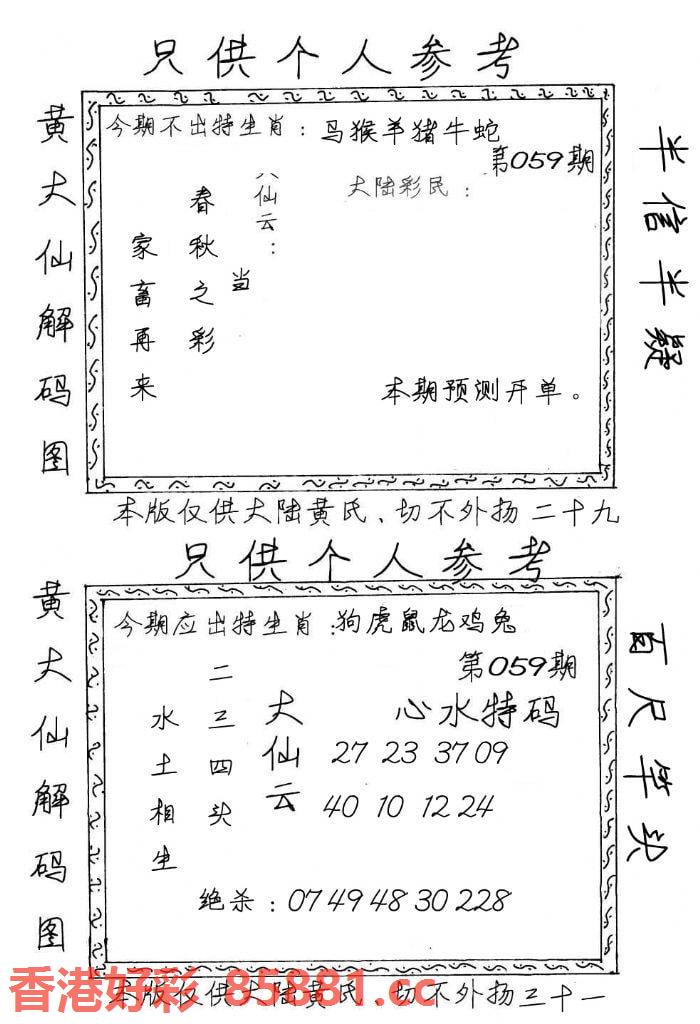 只供个人参考
黄大仙解码图
今期不出特生肖：鸟猴羊猪牛蛇
第059期
大陆彩民：
八仙云：
当
春秋之彩
家畜再来
本期预测开单。
半信半疑
本版仅供大陆黄氏、切不外扬二十九
只供个人参考
黄大仙解码图
今期应出特生肖：狗虎鼠龙鸡兔
第059期
心水特码
大仙云
二三四头
水土相生
27 23 37 09
40 10 12 24
绝杀：07 49 48 30 22 8
百尺竿头
本版仅供大陆黄氏、切不外扬三十一
香港好彩 85881.cc